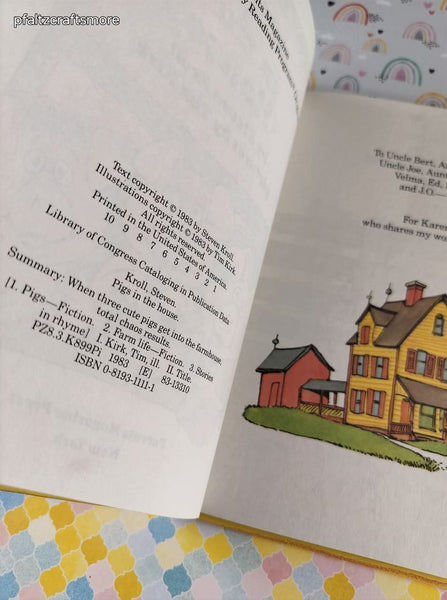 pfaltzcraftsmore
ts Magazine
y Reading Program
Text copyright © 1983 by Steven Kroll.
Illustrations copyright © 1983 by Tim Kirk.
All rights reserved.
Printed in the United States of America.
10 9 8 7 6 5 4 3 2 1
Library of Congress Cataloging in Publication Data
Kroll, Steven.
Pigs in the house.
Summary: When three cute pigs get into the farmhouse,
total chaos results.
[1. Pigs—Fiction. 2. Farm life—Fiction. 3. Stories
in rhyme] I. Kirk, Tim, ill. II. Title.
PZ8.3.K899Pi 1983 [E] 83-13310
ISBN 0-8193-1111-1
To Uncle Bert, A
Uncle Joe, Aun
Velma, Ed,
and J.O.—
For Karen
who shares my wo